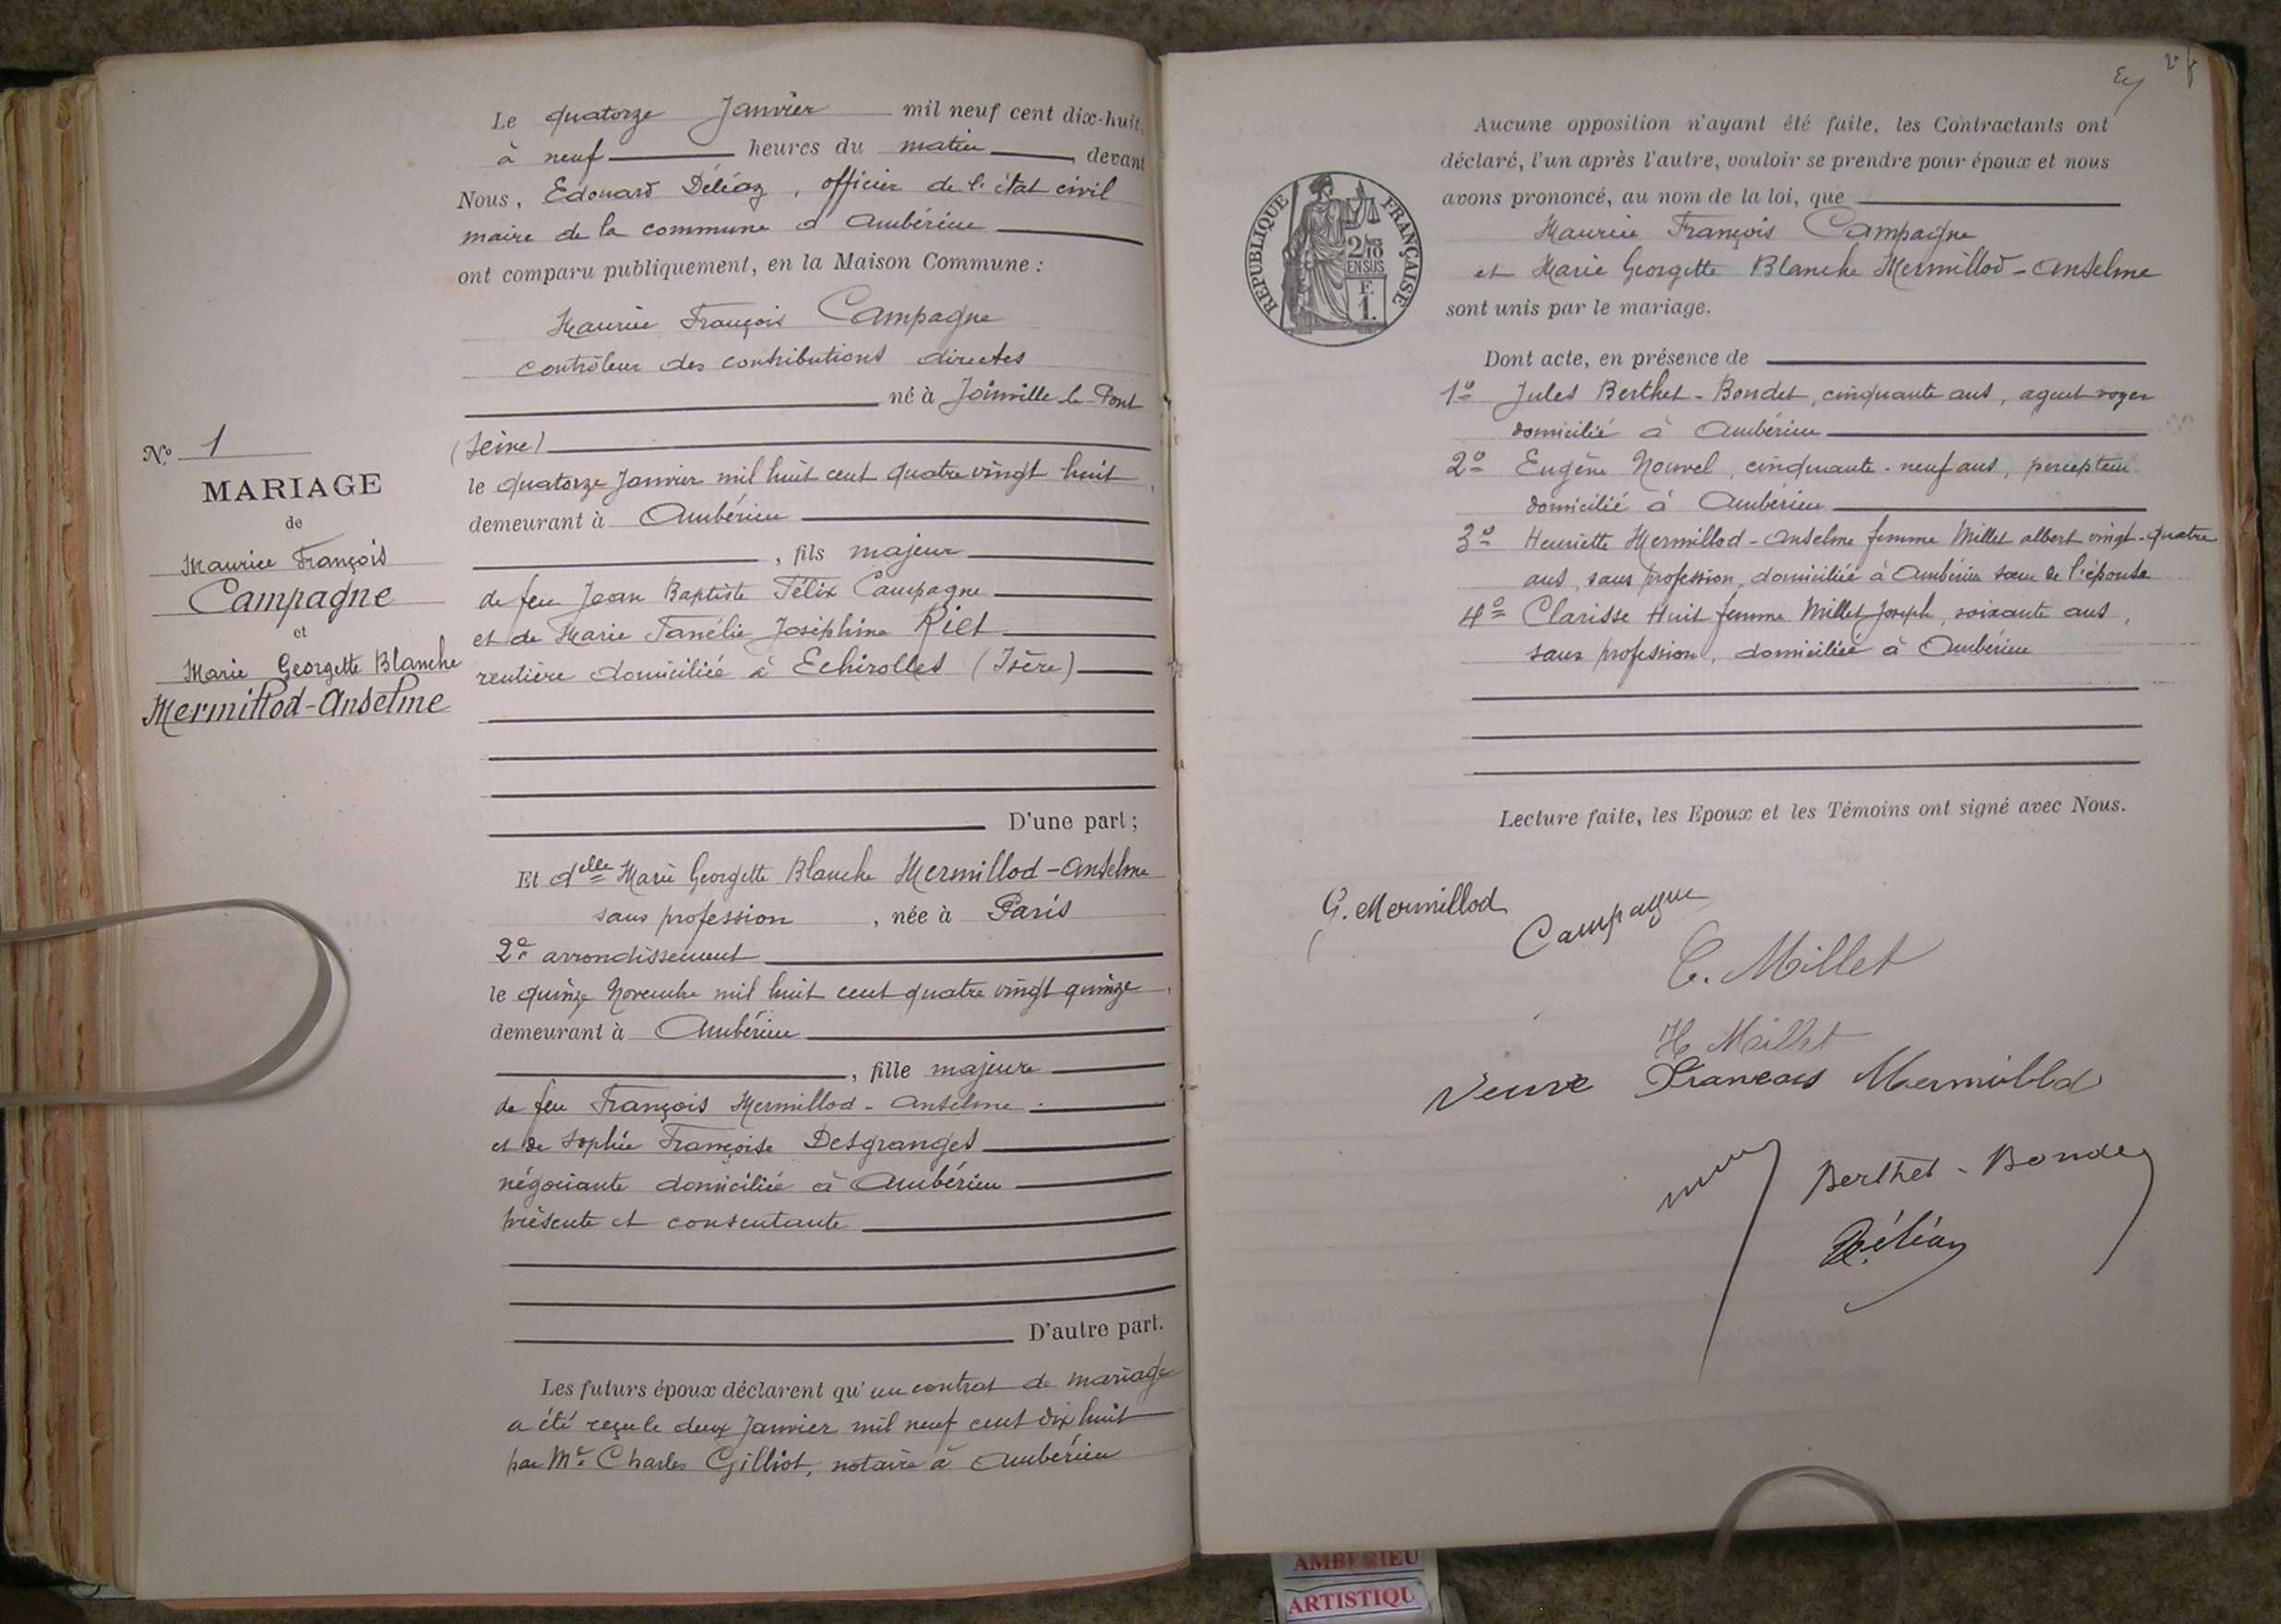 Le quatorze Janvier mil neuf cent dix-huit,
à neuf heures du matin, devant
Nous, Edouard Déléaz, officier de l'état civil
maire de la commune d'Ambérieu
ont comparu publiquement, en la Maison Commune :
Maurice François Campagne
contrôleur des contributions directes
né à Joinville le Pont
(Seine)
le quatorze Janvier mil huit cent quatre vingt huit,
demeurant à Ambérieu
, fils majeur
de feu Jean Baptiste Félix Campagne
et de Marie Fanélie Joséphine Riet
rentière domiciliée à Echirolles (Isère)
D'une part ;
Et delle Marie Georgette Blanche Mermillod-Anselme
sans profession, née à Paris
2e arrondissement
le quinze Novembre mil huit cent quatre vingt quinze,
demeurant à Ambérieu
, fille majeure
de feu François Mermillod-Anselme
et de Sophie Françoise Desgranges
négociante domiciliée à Ambérieu
présente et consentante
D'autre part.
Les futurs époux déclarent qu'un contrat de mariage
a été reçu le deux Janvier mil neuf cent dix huit
par Me Charles Gilliot, notaire à Ambérieu
No 1
MARIAGE
de
Maurice François
Campagne
et
Marie Georgette Blanche
Mermillod-Anselme
Aucune opposition n'ayant été faite, les Contractants ont
déclaré, l'un après l'autre, vouloir se prendre pour époux et nous
avons prononcé, au nom de la loi, que
Maurice François Campagne
et Marie Georgette Blanche Mermillod-Anselme
sont unis par le mariage.
RÉPUBLIQUE FRANÇAISE
2/10
EN SUS
F.
1.
Dont acte, en présence de
1o Jules Berthet-Bondet, cinquante ans, agent voyer
domicilié à Ambérieu
2o Eugène Nouvel, cinquante-neuf ans, percepteur
domicilié à Ambérieu
3o Henriette Mermillod-Anselme femme Millet albert vingt-quatre
ans, sans profession, domiciliée à Ambérieu sœur de l'épouse
4o Clarisse Huit femme Millet Joseph, soixante ans,
sans profession, domiciliée à Ambérieu
Lecture faite, les Epoux et les Témoins ont signé avec Nous.
G. Mermillod
Campagne
C. Millet
H Millet
Veuve Francois Mermillod
Berthet-Bondet
Déléaz
AMBERIEU
ARTISTIQU